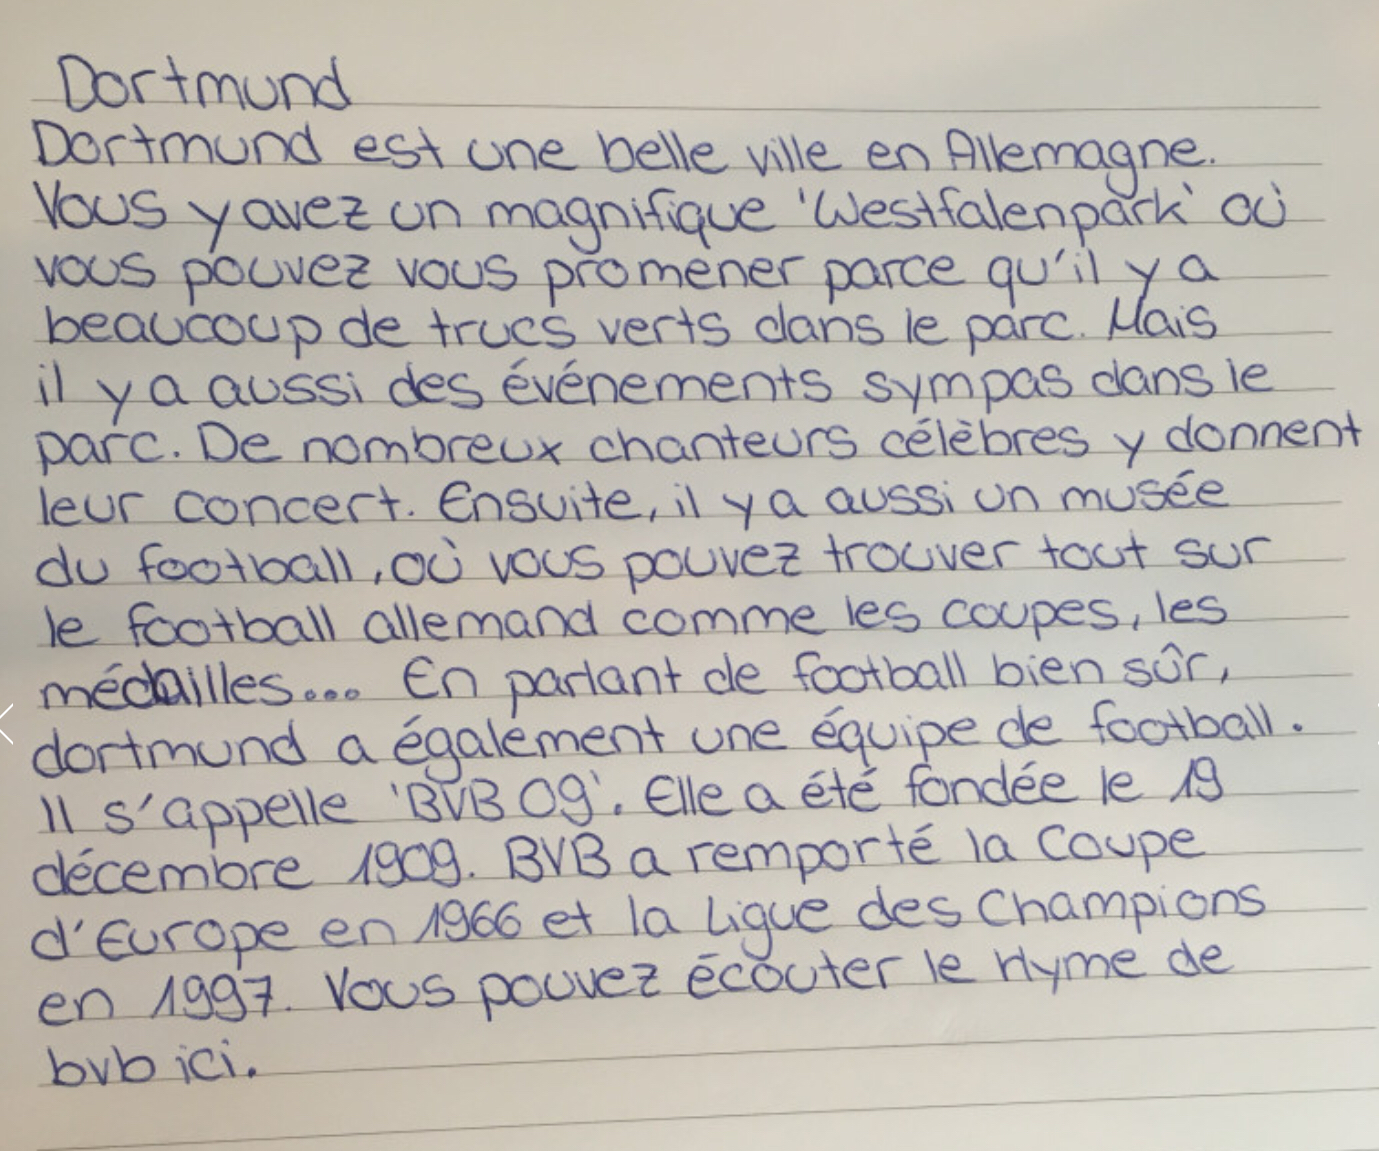 Dortmund
Dortmund est une belle ville en Allemagne.
Vous y avez un magnifique 'Westfalenpark' où
vous pouvez vous promener parce qu'il y a
beaucoup de trucs verts dans le parc. Mais
il y a aussi des événements sympas dans le
parc. De nombreux chanteurs célèbres y donnent
leur concert. Ensuite, il y a aussi un musée
du football, où vous pouvez trouver tout sur
le football allemand comme les coupes, les
médailles... En parlant de football bien sûr,
dortmund a également une équipe de football.
Il s'appelle 'BVB 09'. Elle a été fondée le 19
décembre 1909. BVB a remporté la Coupe
d'Europe en 1966 et la Ligue des Champions
en 1997. Vous pouvez écouter le Hyme de
bvb ici.